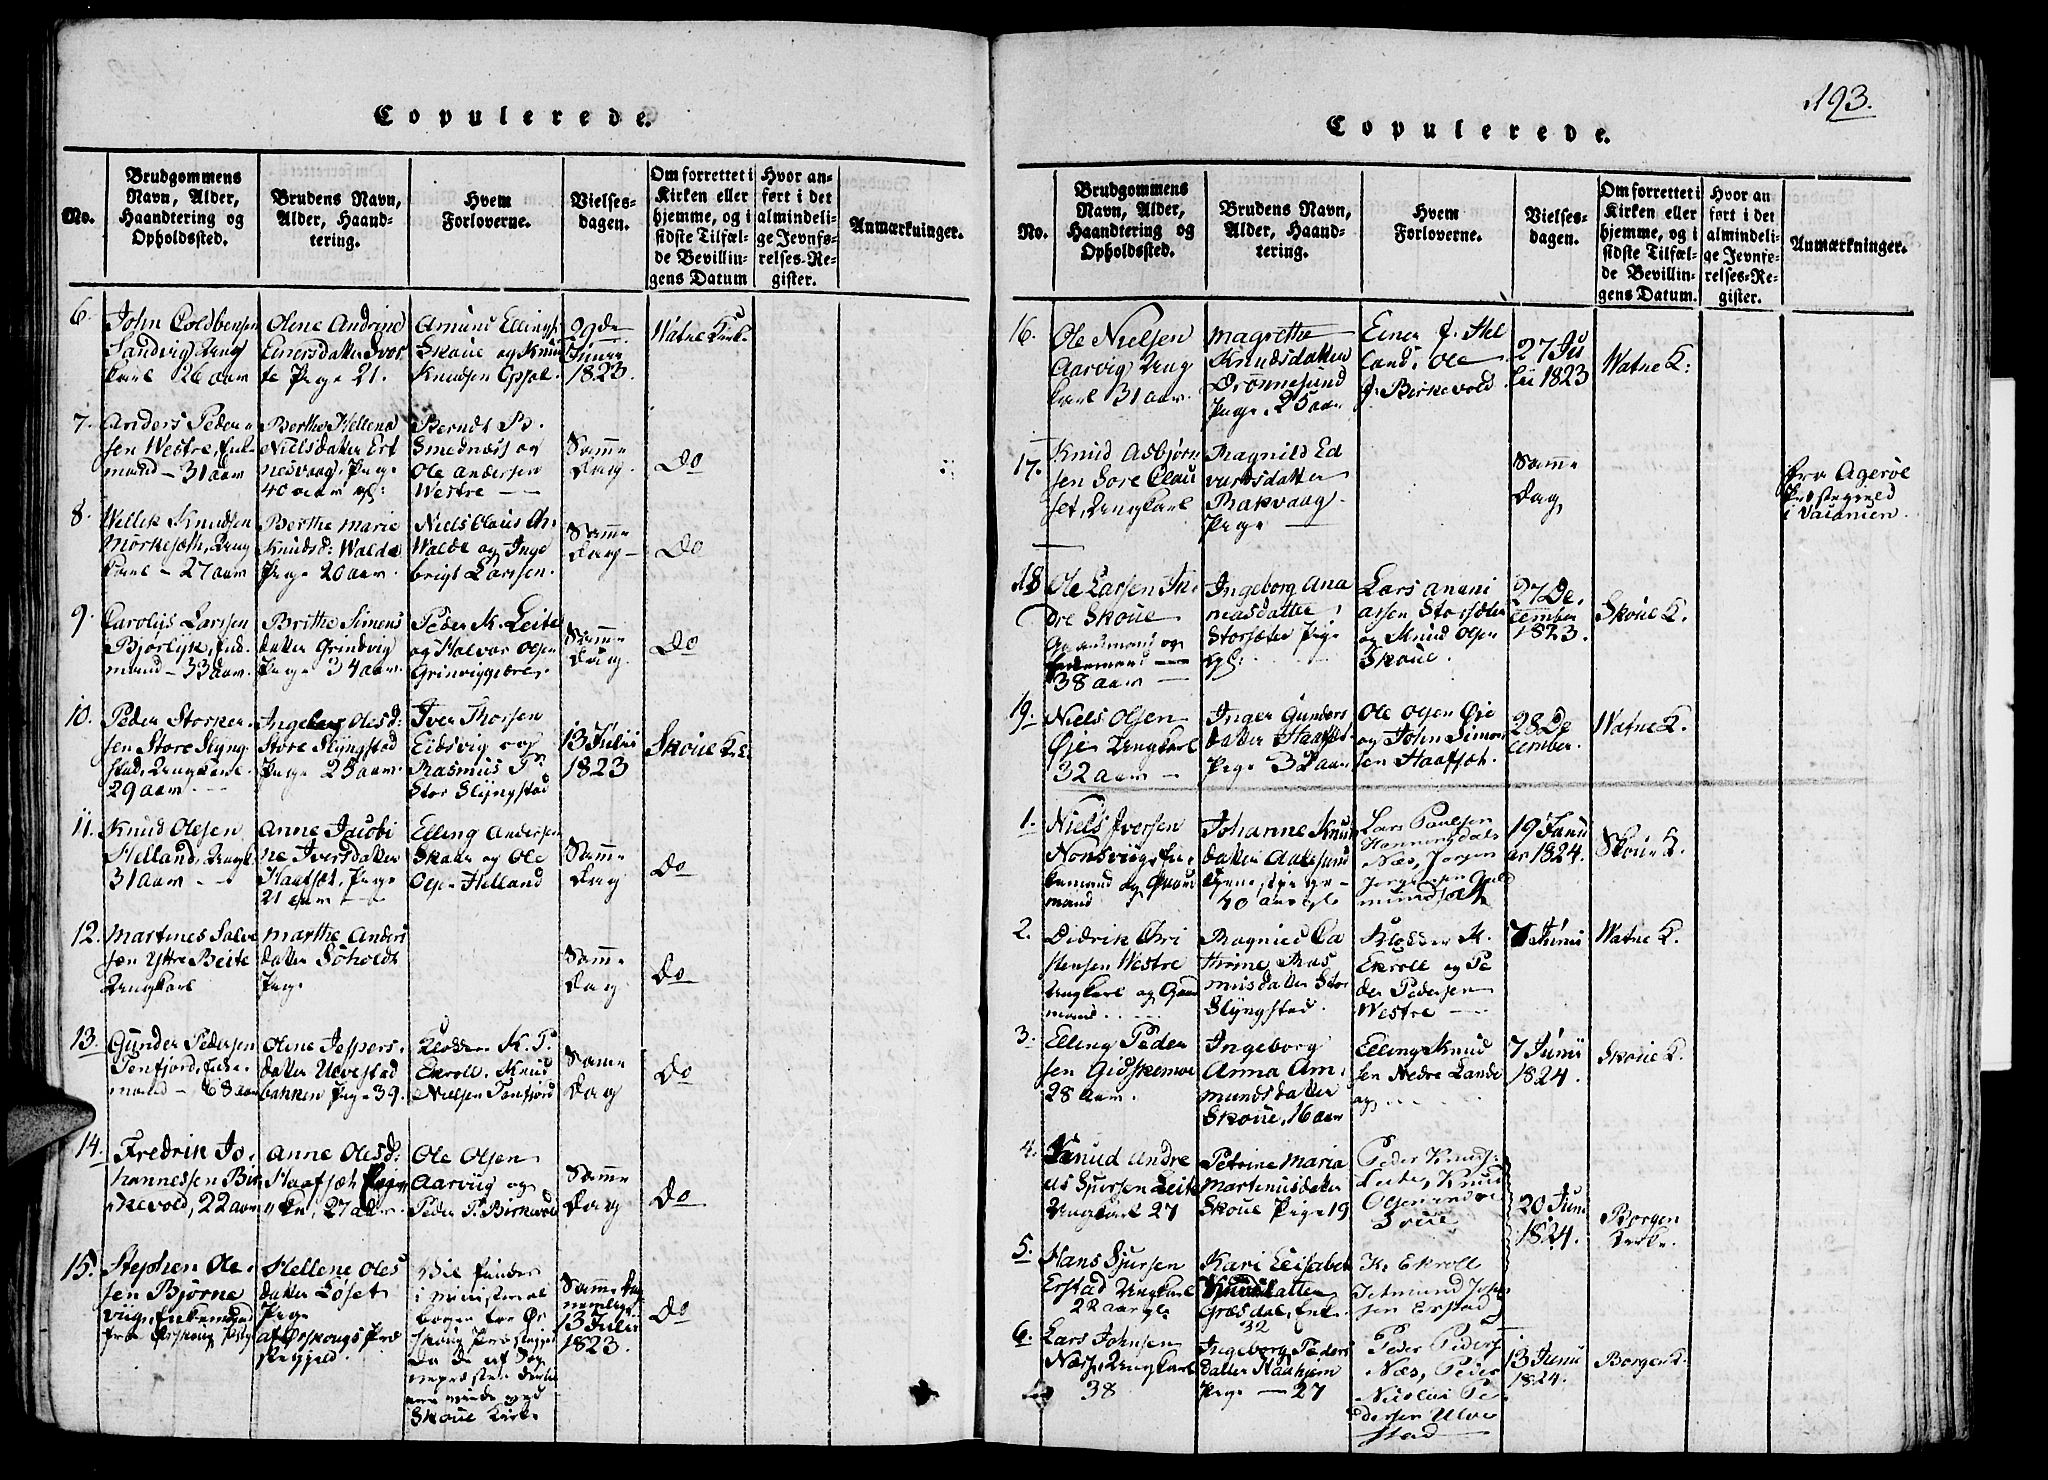 Copulerede.
No.
Brudgommens Navn, Alder, Haandtering og Opholdssted.
Brudens Navn, Alder, Haandtering.
Hvem Forloverne.
Vielsesdagen.
Om forrettet i Kirken eller hjemme, og i sidste Tilfælde Bevillingens Datum
Hvor anført i det almindelige Jevnførelses-Register.
Anmærkninger.
6.
John
Sandvig Ung
karl 26 aar
Olene Andrine
Einersdatter
Pige 21.
Amund Ellings
Skoue og Knud
Knudsen
29de
Junii
1823.
Watne Kirke
7.
Anders Peder
sen Westre, Enke
mand — 31 aar
Berthe Hellena
Nielsdatter
nesvaag, Pige
40 aar
Berndt P.
Smednæss og
Ole Andersen
Westre
Samme
Dag
Do
8.
Knudsen
Ung
karl — 27 aar
Berthe Marie
Knudsd: Walde
Pige 20 aar.
Niels Claus
Walde og Inge
brigt Larssen.
Samme
Dag
Do
9.
Larssen
Bjørlyk, Enke
mand — 33 aar.
Brithe Simons
datter Grindvig
Pige 34 aar
Peder K. Leite
og Halvor Olsen
Samme
Dag.
Do
10.
Peder Storker
sen Store Slyng
stad, Ungkarl
29 aar
Olesd:
Store Slyngstad
Pige 25 aar.
Iver Thorsen
Eidsvig og
Rasmus
Stor Slyngstad
13 Julii
1823
Skoue K:
11.
Knud Olesen
Helland, Ungk.
31 aar
Anne Jacobi
ne Iversdatter
Haafsæt, Pige
21 aar
Elling Andersen
Skoue og Ole
Olsen Helland
Samme
Dag
Do
12.
Martines Salve
sen Yttre Beite
Ungkarl
Marthe Anders
datter Søholdt
Pige
Samme
Dag
Do
13.
Gunder Pedersen
Tenfjord, Enke
mand — 68 aar
Olene Jespers
datter Ulvestad
bakken Pige 39.
Klokker K. P.
Ekroll. Knud
Nielsen Tenfjord
Samme
Dag
Do
14.
Fredrik Jo
hannessen Bir
kevold, 22 aar
Anne Olesd:
Haafsæt
27 aar
Ole Olsen
Aarviig og
Peder P. Birkevold
Samme
Dag
Do
15.
Stephen Ole
sen Bjørne
viig, Enkemand
fra
Hellene Oles
datter Løset
Pige
af Ørskougs Præ
stegjeld.
i ministerial
bogen for Ør
skoug Præstegjeld
Da de af Sog
nepræsten
viede ved
Skoue Kirke
Samme Dag
nemlig
13 Julii
1823.
Do
193.
Copulerede.
No.
Brudgommens Navn, Alder, Haandtering og Opholdssted.
Brudens Navn, Alder, Haandtering.
Hvem Forloverne.
Vielsesdagen.
Om forrettet i Kirken eller hjemme, og i sidste Tilfælde Bevillingens Datum.
Hvor anført i det almindelige Jevnførelses-Register.
Anmærkninger.
16.
Ole Nielsen
Aarvig Ung
karl 31 aar
Magrethe
Knudsdatter
Drønnesund
Pige, 25 aar
Einer J. Hel
land, Ole
J. Birkevold
27 Ju
lii 1823
Watne K:
17.
Knud Asbjørn
sen Sore Clau
set, Ungkarl
Magnild Ed
vartsdatter
Rakvaag
Pige
Samme
Dag
fra Agerøe
Præstegield
i Vacancen.
18
Ole Larssen In
dre Skoue
Gaardmand og
Enkemand
38 aar
Ingeborg Ana
niasdatter
Storsæter Pige
Lars Anani
assen Storsæter
og Knud Olsen
Skoue.
27 De
cember
1823.
Skoue K.
19.
Niels Olsen
Øje Ungkarl
32 aar
Inger Gunders
datter Haafset
Pige 32 aar
Ole Olsen Øje
og John Simon
sen Haafsæt.
28 De
cember.
Watne K.
1.
Niels Iversen
Nonsviig, En
kemand og Gaard
mand
Johanne Knu
datter Aalesund
40 aar
Lars Paulsen
Hanningdals
Næs, Jørgen
19 Janu
ar 1824.
Skoue K.
2.
Didrik Chri
stensen Westre
Ungkarl og Gaar
mand
Magnild Ca
thrine Ras
musdatter Stor
Slyngstad.
Klokker K.
Ekroll og Pe
der Pedersen
Westre
7 Junii
Watne K.
3.
Elling Peder
sen Gidskemoe
28 aar.
Ingeborg
Anna Am
mundsdatter
Skoue, 16 aar
Elling Knud
sen Nedre Lande
og
7 Junii
1824.
Skoue K.
4.
Knud Andre
as Sjursen Leite
Ungkarl 27
Petrine Maria
Martinusdatter
Skoue Pige 19
Peder Knuds:
Leite, Knud
Olsen
Skoue
20 Juni
1824.
Borgen
Kirke.
5.
Hans Sjursen
Erstad Ungkarl
22 aar
Kari Elisabet
Knudsdatter
Græsdal, Enke
32
K. Ekroll
Jetmund
sen Erstad
6.
Lars Johnsen
Næss, Ungkarl
38
Ingeborg Peders
datter Haahjem
Pige — 27
Peder Peders
Næs, Peder
Nicolai Pe
dersen Ulve
stad
13 Juni
1824.
Borgen K.